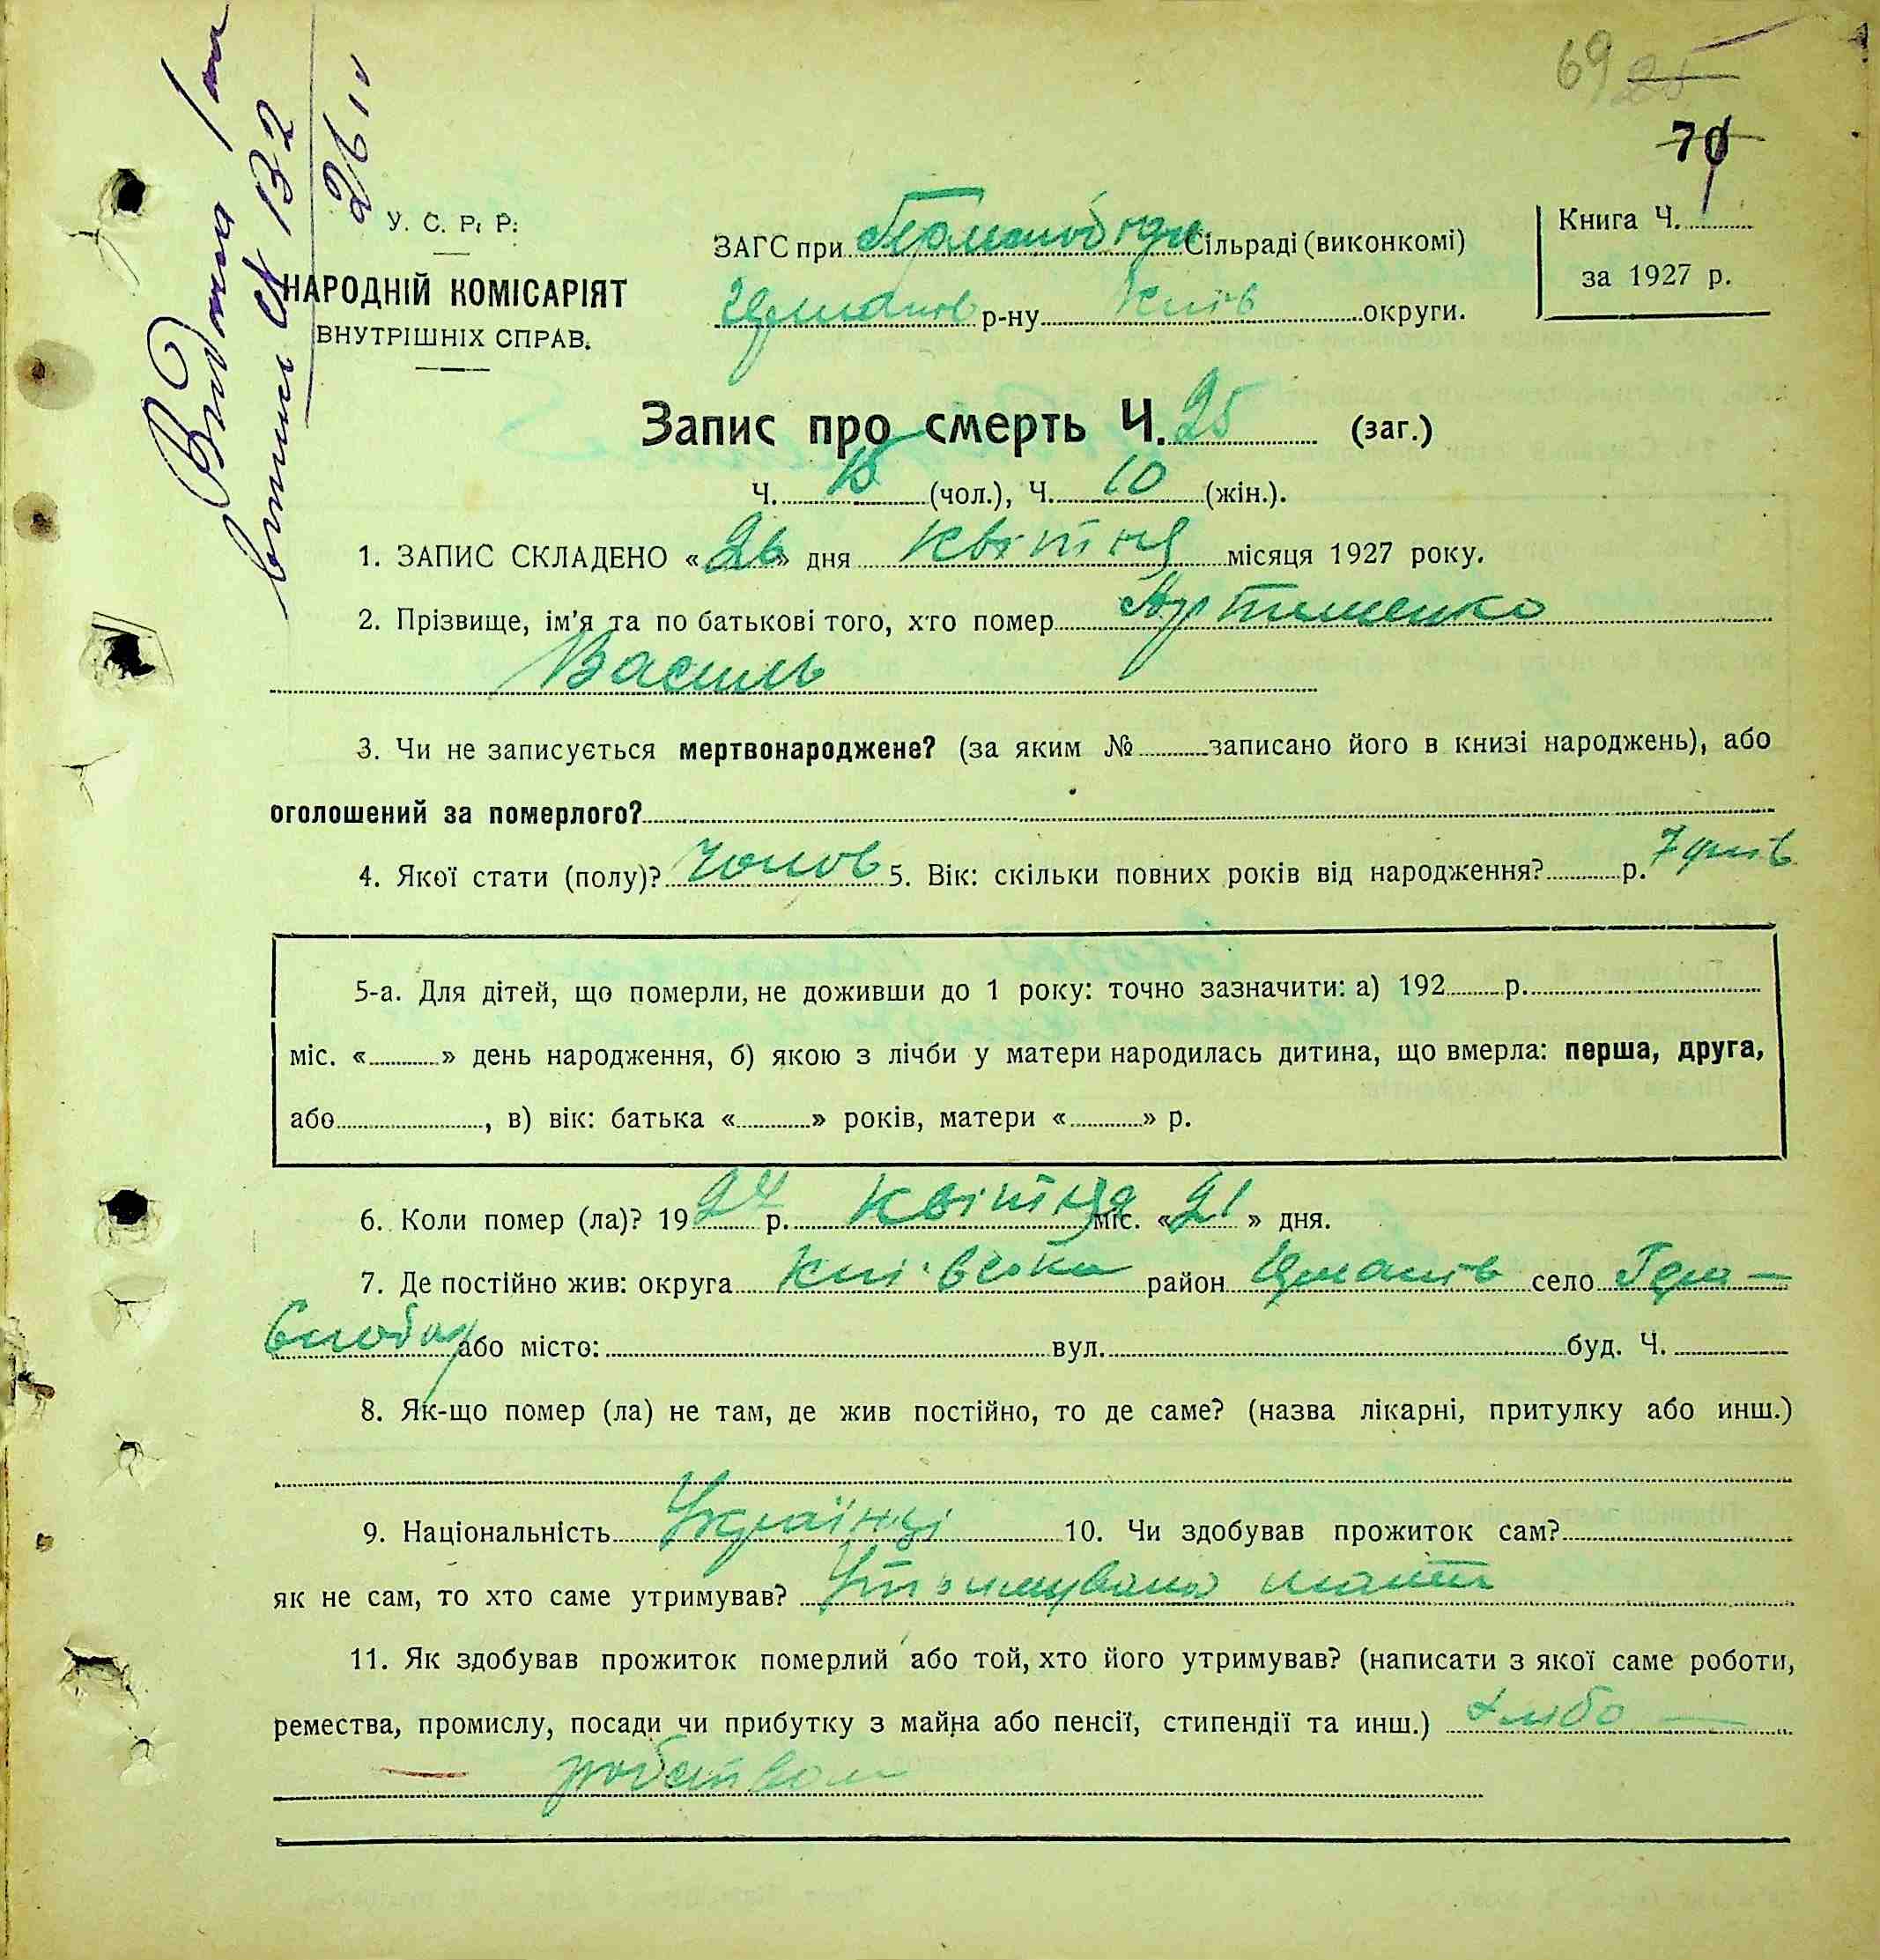 69 25
70
Видана
випис № 132
26 IV
У. С. Р. Р.
НАРОДНІЙ КОМІСАРІЯТ
ВНУТРІШНІХ СПРАВ.
ЗАГС при Сільраді (виконкомі)
р-ну Київ округи.
Книга Ч.
за 1927 р.
Запис про смерть Ч. 25 (заг.)
Ч. 15 (чол.), Ч. 10 (жін.).
1. ЗАПИС СКЛАДЕНО «26» дня квітня місяця 1927 року.
2. Прізвище, ім'я та по батькові того, хто помер Артименко
Василь
3. Чи не записується мертвонароджене? (за яким № записано його в книзі народжень), або
оголошений за померлого?
4. Якої стати (полу)? чолов 5. Вік: скільки повних років від народження? р. 7 днів
5-а. Для дітей, що померли, не доживши до 1 року: точно зазначити: а) 192 р.
міс. « » день народження, б) якою з лічби у матери народилась дитина, що вмерла: перша, друга,
або , в) вік: батька « » років, матери « » р.
6. Коли помер (ла)? 1927 р. квітня міс. «21» дня.
7. Де постійно жив: округа Київська район село
або місто: вул. буд. Ч.
8. Як-що помер (ла) не там, де жив постійно, то де саме? (назва лікарні, притулку або инш.)
9. Національність Українці 10. Чи здобував прожиток сам?
як не сам, то хто саме утримував? Утримувала мати
11. Як здобував прожиток померлий або той, хто його утримував? (написати з якої саме роботи,
ремества, промислу, посади чи прибутку з майна або пенсії, стипендії та инш.) хлібо —
робством